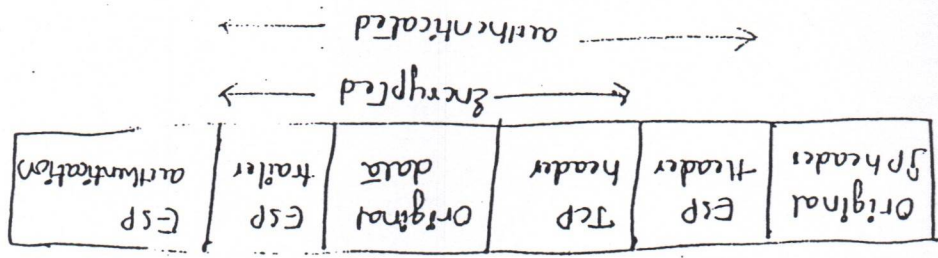 Original IP header
ESP Header
TCP header
Original data
ESP trailer
ESP authentication
Encrypted
authenticated